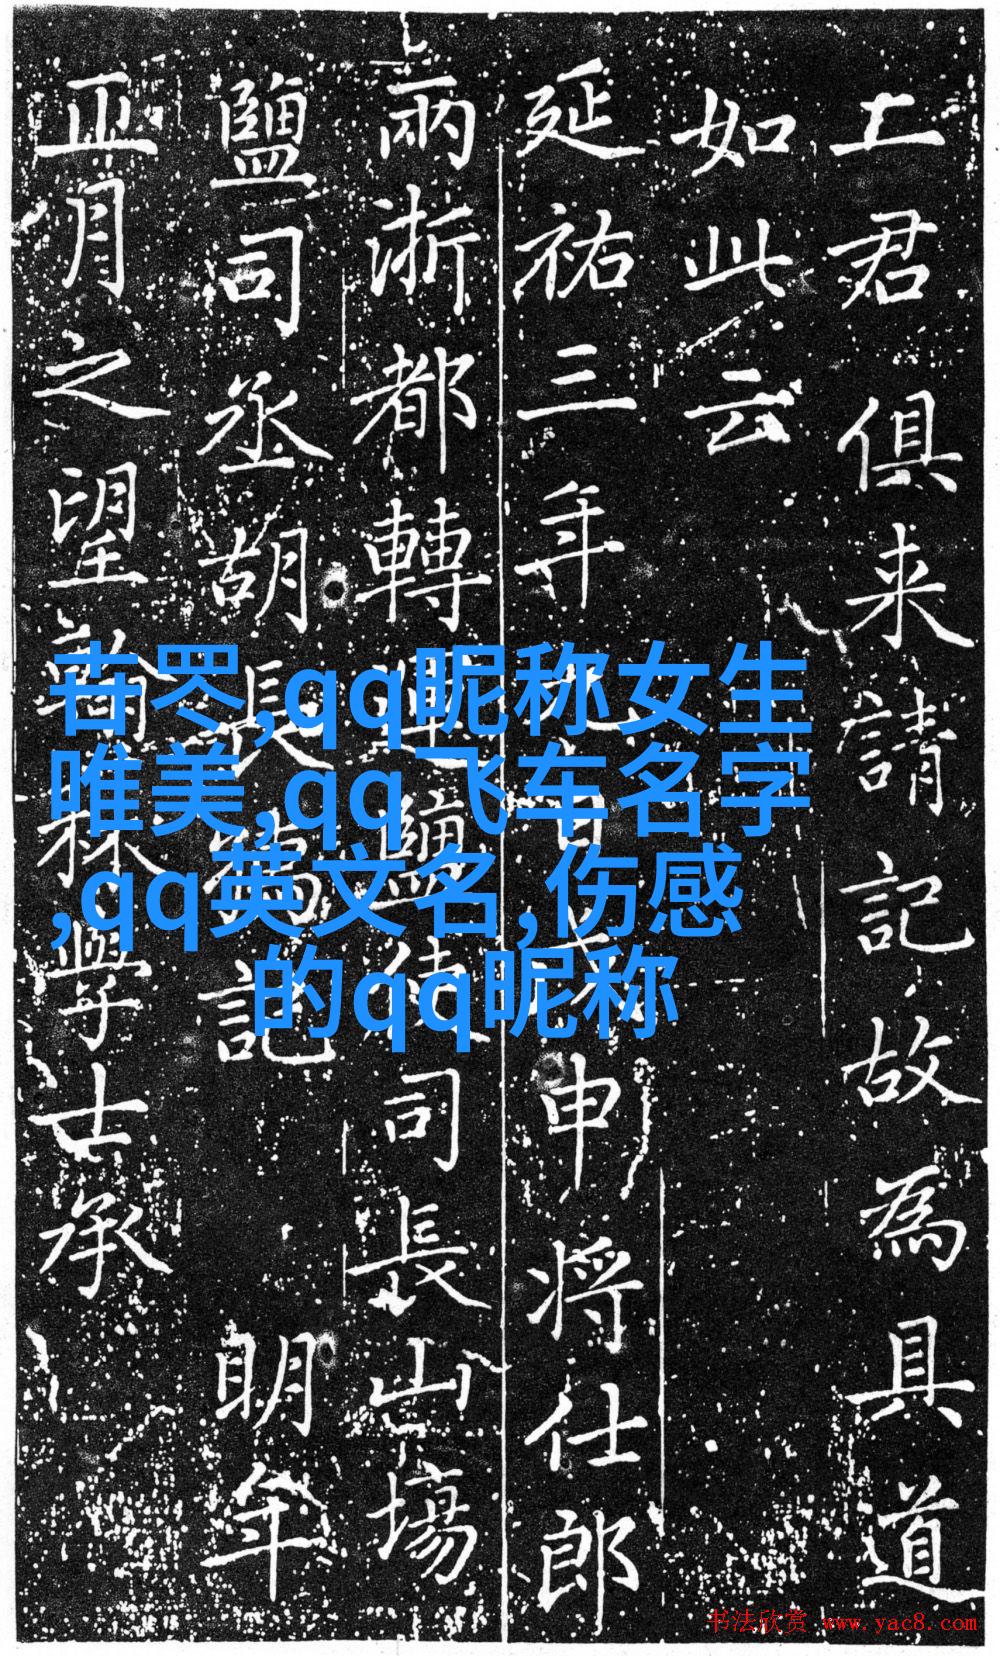 君俱来請記故為具道
如此云
延祐三年申将仕郎
兩浙都轉運鹽使司長山場
鹽司丞胡長孺記 明年
正月之望翰林學士承
,qq昵称女生
唯美,qq飞车名字
,qq英文名,伤感
的qq昵称
书法欣赏 www.yac8.com